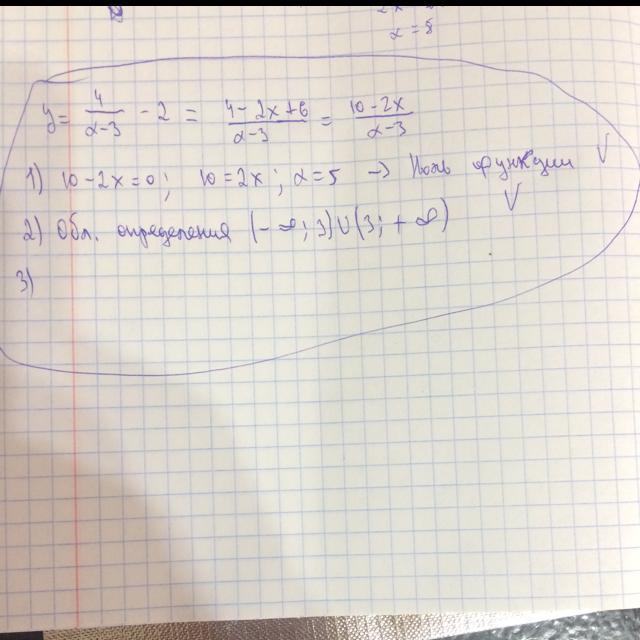 x = 8
y = 4/(x-3) - 2 = (4-2x+6)/(x-3) = (10-2x)/(x-3)
1) 10-2x=0; 10=2x; x=5 → Ноль функции V
2) Обл. определения (-∞; 3)∪(3; +∞) V
3)